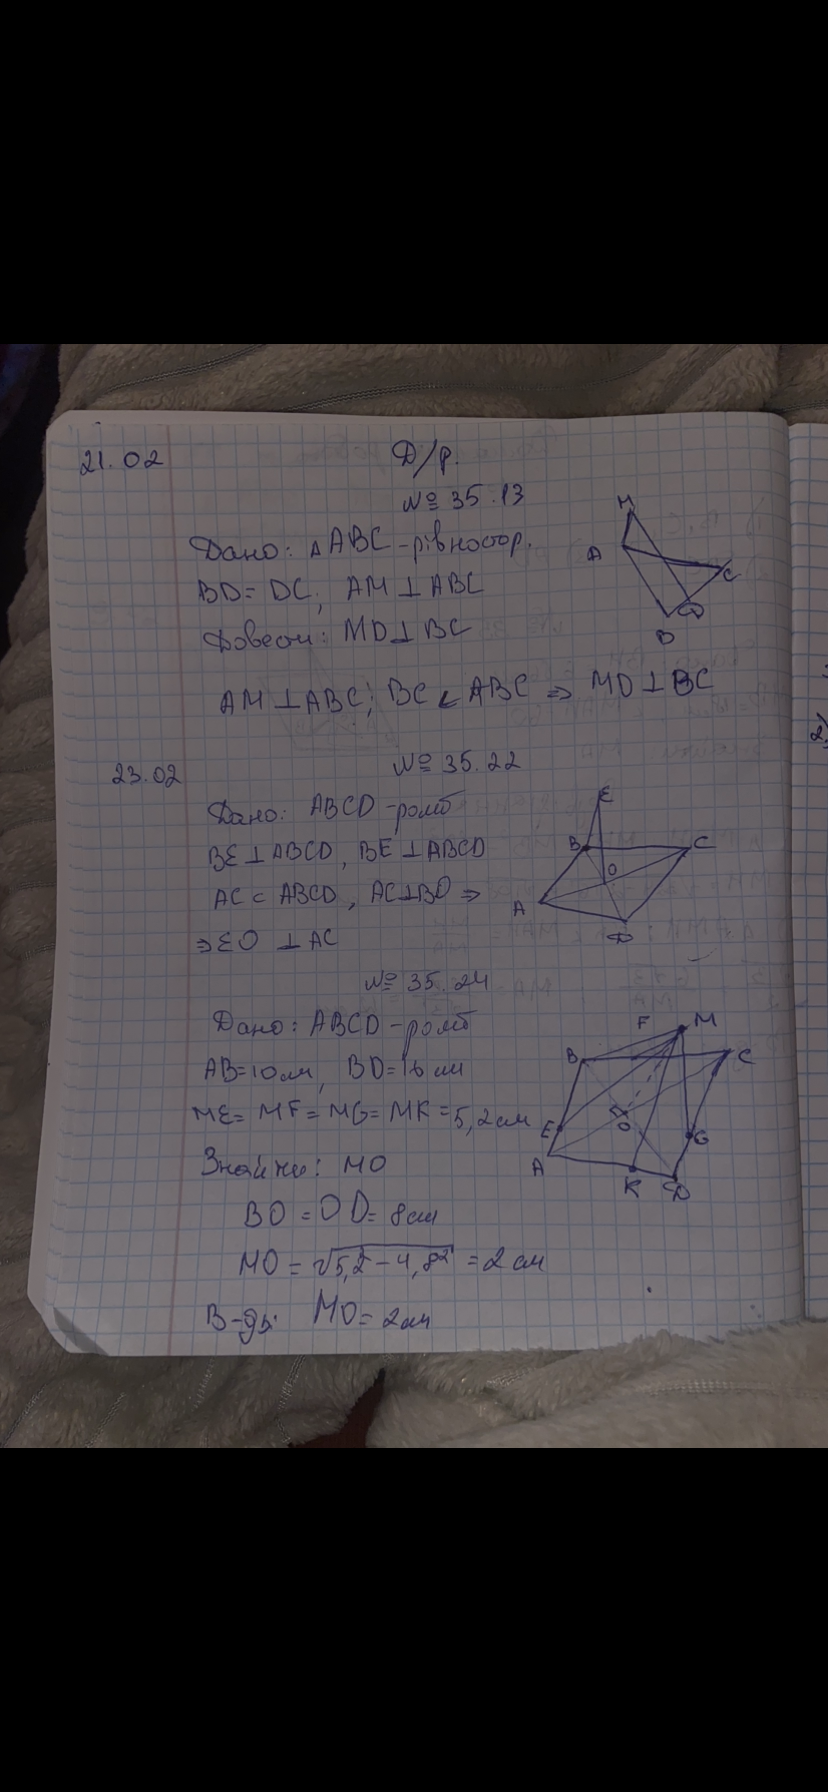 21.02 Д/р.
№ 35.13
Дано: △ABC - рівностор.
BD = DC, AM ⊥ ABC
Довести: MD ⊥ BC
AM ⊥ ABC; BC < ABC ⇒ MD ⊥ BC
M
A
C
D
B
23.02 № 35.22
Дано: ABCD - ромб
BE ⊥ ABCD, BE ⊥ ABCD
AC ⊂ ABCD, AC ⊥ BO ⇒
⇒ EO ⊥ AC
E
B
C
O
A
D
№ 35.24
Дано: ABCD - ромб
AB = 10 см, BD = 16 см
ME = MF = MG = MK = 5,2 см
Знайти: MO
BO = OD = 8 см
MO = √5,2² - 4,8² = 2 см
В-дь: MO = 2 см
F M
B C
O
E G
A
K D
2